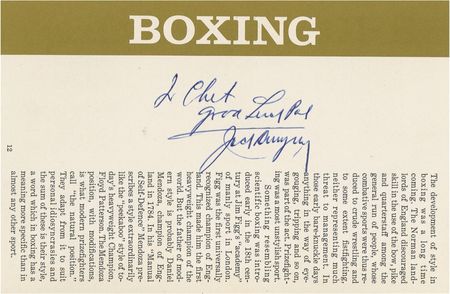 BOXING
To Chet
Good Luck Pal
Jack Dempsey
The development of style in
boxing was a long time
coming. The Norman land-
lords of England discouraged
skill in the use of bow, pike
and quarterstaff among the
general run of people, whose
combative sports were thus re-
duced to crude wrestling and
to some extent fistfighting,
neither representing much
threat to management. In
those early bare-knuckle days
anything in the way of eye-
gouging, tripping and so on,
was part of the act. Prizefight-
ing was a most unstylish sport.
Something resembling
scientific boxing was intro-
duced early in the 18th cen-
tury at Jim Figg's "academy"
of manly sports in London.
Figg was the first universally
recognized champion of Eng-
land. This made him the first
heavyweight champion of the
world. But the father of mod-
ern style is probably Daniel
Mendoza, champion of Eng-
land in 1784. In his "Manual
of Self-Defense" Mendoza pre-
scribes a style extraordinarily
like the "peekaboo" style of to-
day's heavyweight Champion
Floyd Patterson. The Mendoza
position, with modifications,
is what modern prizefighters
call "the natural position."
They adapt from it to suit
personal idiosyncrasies and
the sum of these is their style,
a word which in boxing has a
meaning more specific than in
almost any other sport.
12